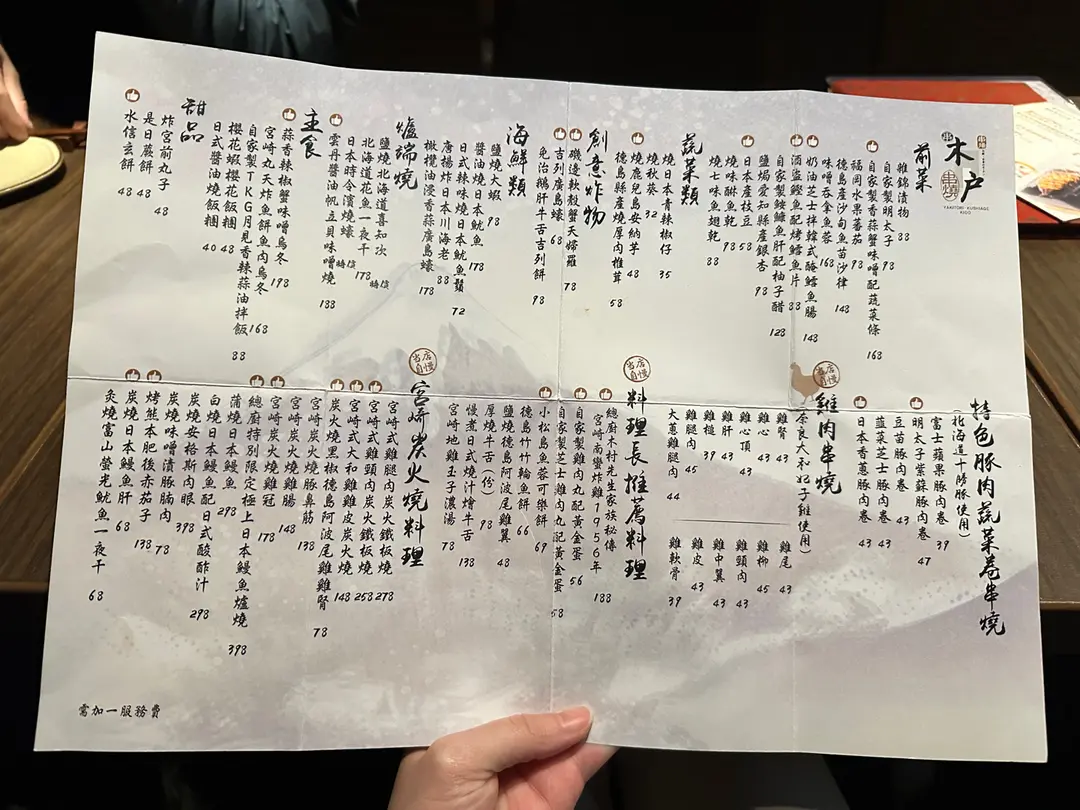 木戶
串燒
YAKITORI KUSHIAGE
KIDO
前菜
雜錦漬物 38
自家製明太子 98
自家製香蒜蟹味噌配蔬菜條 168
福岡水果蕃茄 98
德島產沙甸魚苗沙律 148
味噌吞拿魚蓉 168
奶油芝士拌韓式醃鱈魚腸 148
酒盜鰹魚配烤鱈魚片 88
自家製鮟鱇魚肝配柚子醋 128
鹽焗愛知縣產銀杏 98
日本產枝豆 58
燒味醂魚乾 98
燒七味魚翅乾 88
蔬菜類
燒日本青辣椒仔 35
燒秋葵 32
燒鹿兒島安納芋 48
德島縣產燒厚肉椎茸 58
創意炸物
磯邊軟殼蟹天婦羅 78
吉列廣島蠔 68
免治鵝肝牛舌吉列餅 98
海鮮類
鹽燒大蝦 98
醬油燒日本魷魚 178
日式辣味燒日本魷魚鬚 72
唐楊炸日本川海老 88
橄欖油浸香蒜廣島蠔 178
爐端燒
鹽燒北海道喜知次 時價
北海道花魚一夜干 178
日本時令濱燒蠔 時價
雲丹醬油帆立貝味噌燒 188
主食
蒜香辣椒蟹味噌烏冬 198
宮崎丸天炸魚餅魚肉烏冬 168
自家製TKG月見香辣蒜油拌飯 88
櫻花蝦櫻花飯糰 48
日式醬油燒飯糰 40
甜品
炸宮前丸子 48
是日蕨餅 48
水信玄餅 48
特色豚肉蔬菜卷串燒
(北海道十勝豚使用)
富士蘋果豚肉卷 39
明太子紫蘇豚肉卷 47
豆苗豚肉卷 43
韮菜芝士豚肉卷 43
日本香蔥豚肉卷 43
當店自慢
雞肉串燒
(奈良大和妃子雞使用)
雞腎 43
雞心 45
雞心頂 43
雞肝 43
雞槌 39
雞腿肉 45
大蔥雞腿肉 44
雞尾 43
雞柳 45
雞頸肉 43
雞中翼 43
雞皮 43
雞軟骨 39
當店自慢
料理長推薦料理
總廚木村先生家族秘傳
宮崎南蠻炸雞1956年 188
自家製雞肉丸配黃金蛋 56
自家製芝士雞肉丸配黃金蛋 58
小松島魚蓉可樂餅 69
德島竹竹輪魚餅 66
鹽燒德島阿波尾雞翼 48
厚燒牛舌(份) 98
慢煮日式燒汁燴牛舌 138
宮崎地雞玉子濃湯 78
當店自慢
宮崎炭火燒料理
宮崎式雞腿肉炭火鐵板燒 278
宮崎式雞頸肉炭火鐵板燒 258
宮崎式大和雞雞皮炭火燒 148
炭火燒黑椒德島阿波尾雞雞腎 78
宮崎炭火燒豚鼻筋 138
宮崎炭火燒雞腸 148
宮崎炭火燒雞冠 178
總廚特別限定極上日本鰻魚爐燒 398
蒲燒日本鰻魚 298
白燒日本鰻魚配日式酸酢汁 298
炭燒安格斯肉眼 398
炭燒味噌漬豚腩肉 78
烤熊本肥後赤茄子 138
炭燒日本鰻魚肝 68
炙燒富山螢光魷魚一夜干 68
需加一服務費